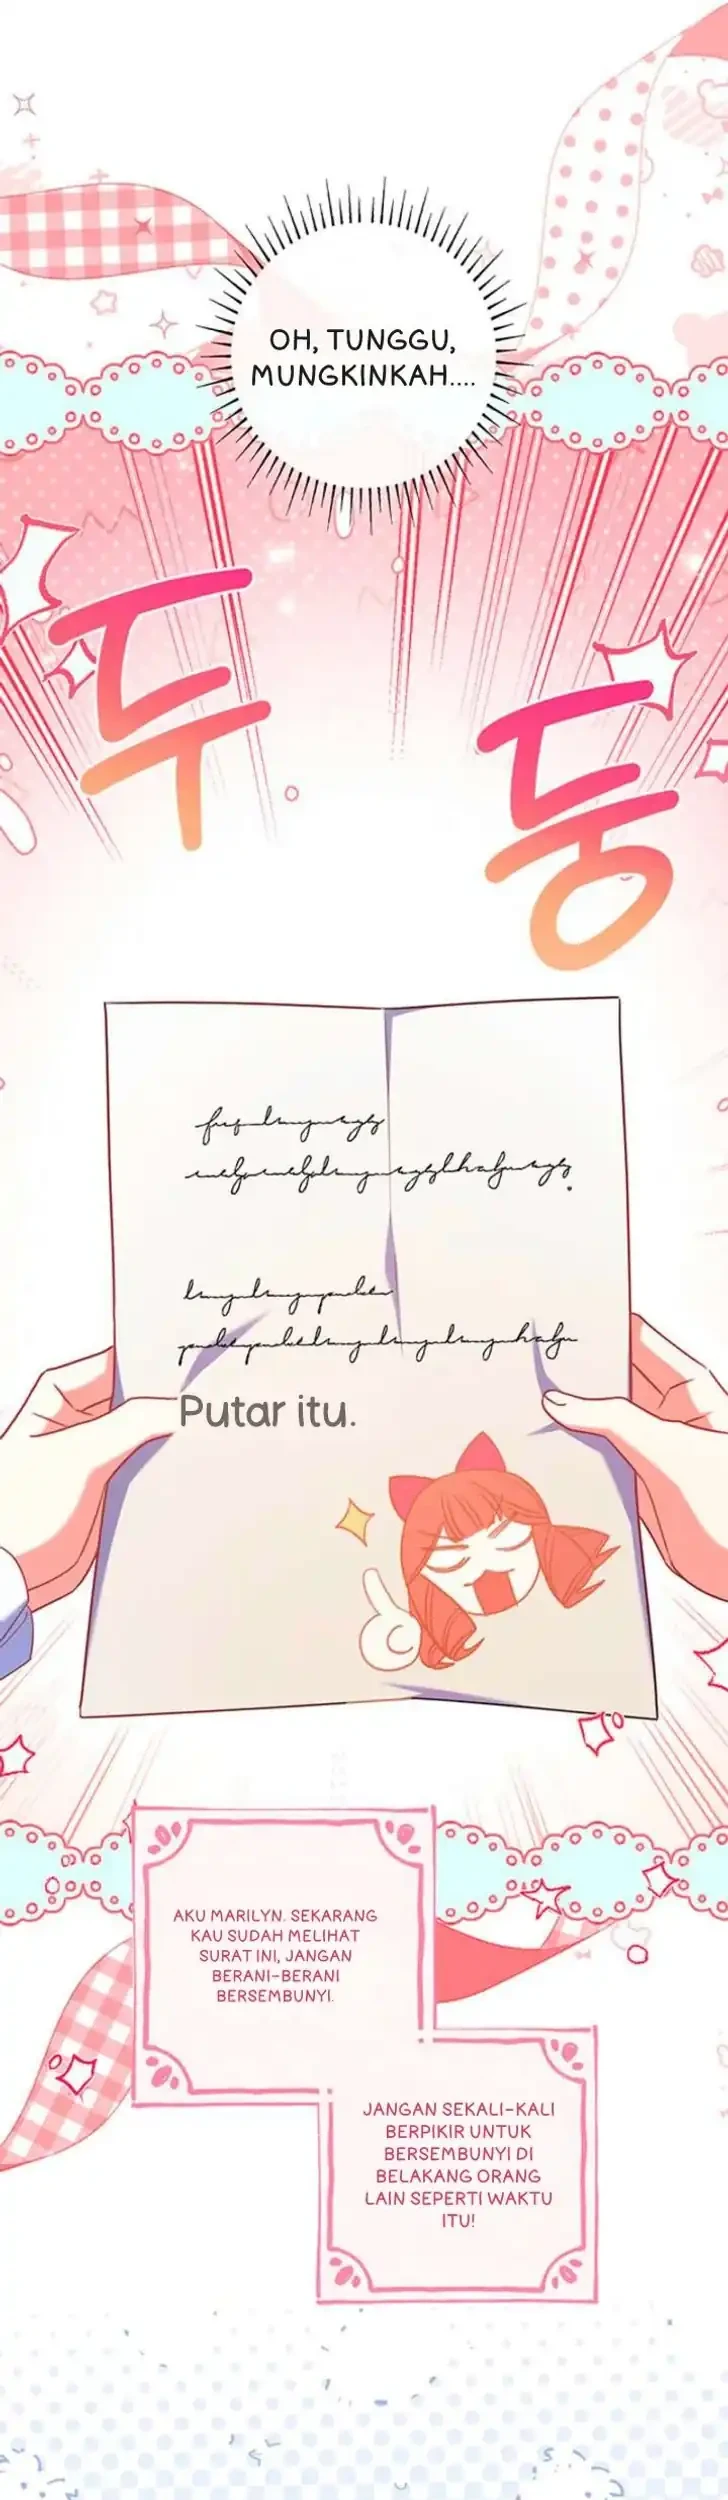 OH, TUNGGU,
MUNGKINKAH....
두
둥
Putar itu.
AKU MARILYN. SEKARANG
KAU SUDAH MELIHAT
SURAT INI, JANGAN
BERANI-BERANI
BERSEMBUNYI.
JANGAN SEKALI-KALI
BERPIKIR UNTUK
BERSEMBUNYI DI
BELAKANG ORANG
LAIN SEPERTI WAKTU
ITU!